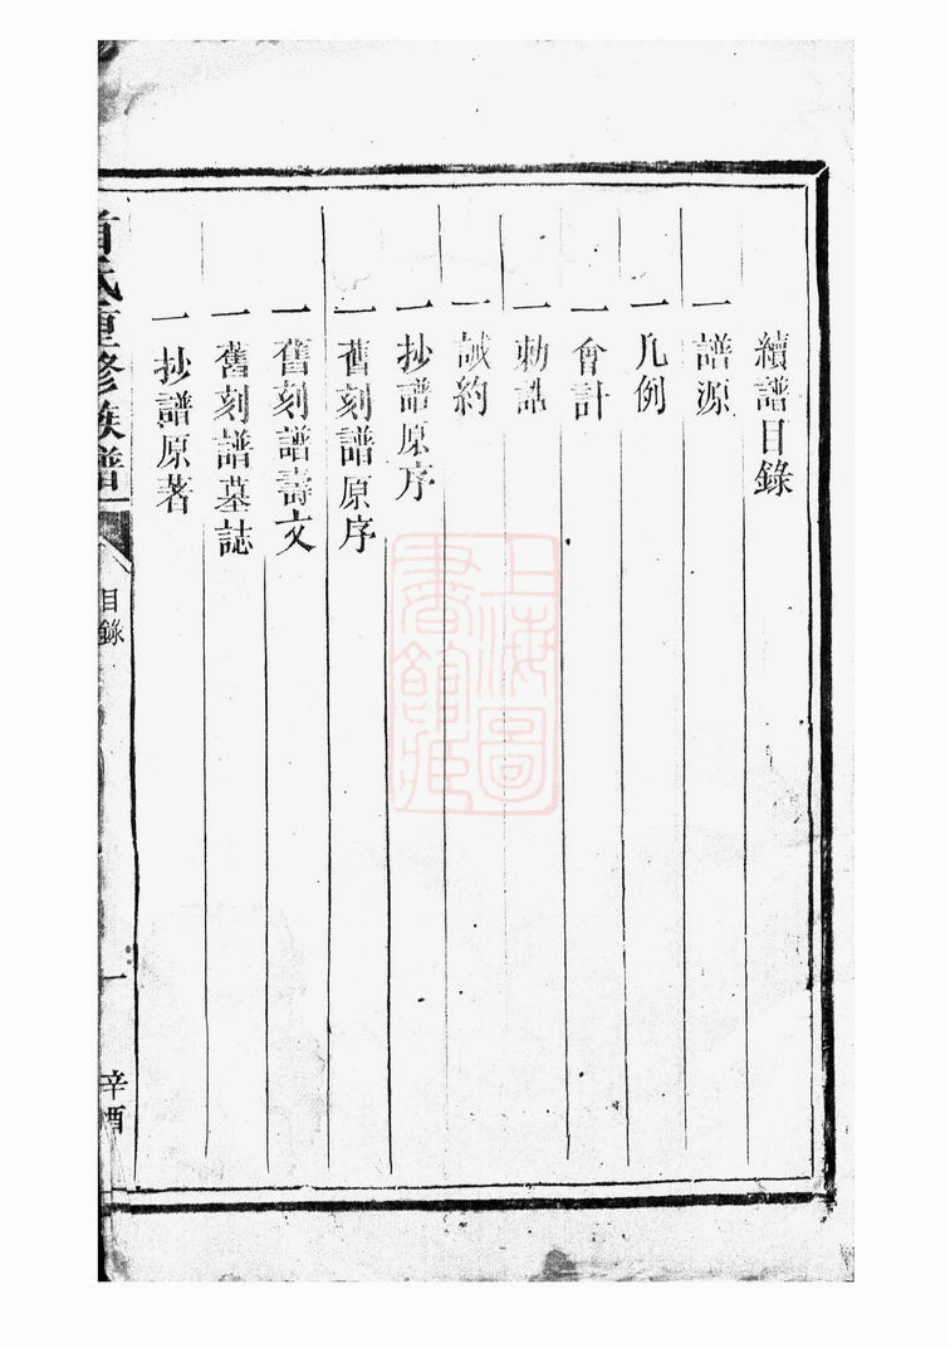 續譜目錄
一譜源
一凡例
一會計
一勅誥
一誡約
一抄譜原序
一舊刻譜原序
一舊刻譜壽文
一舊刻譜墓誌
一抄譜原著
氏重修族譜
目錄
一
辛酉
上海圖書館藏